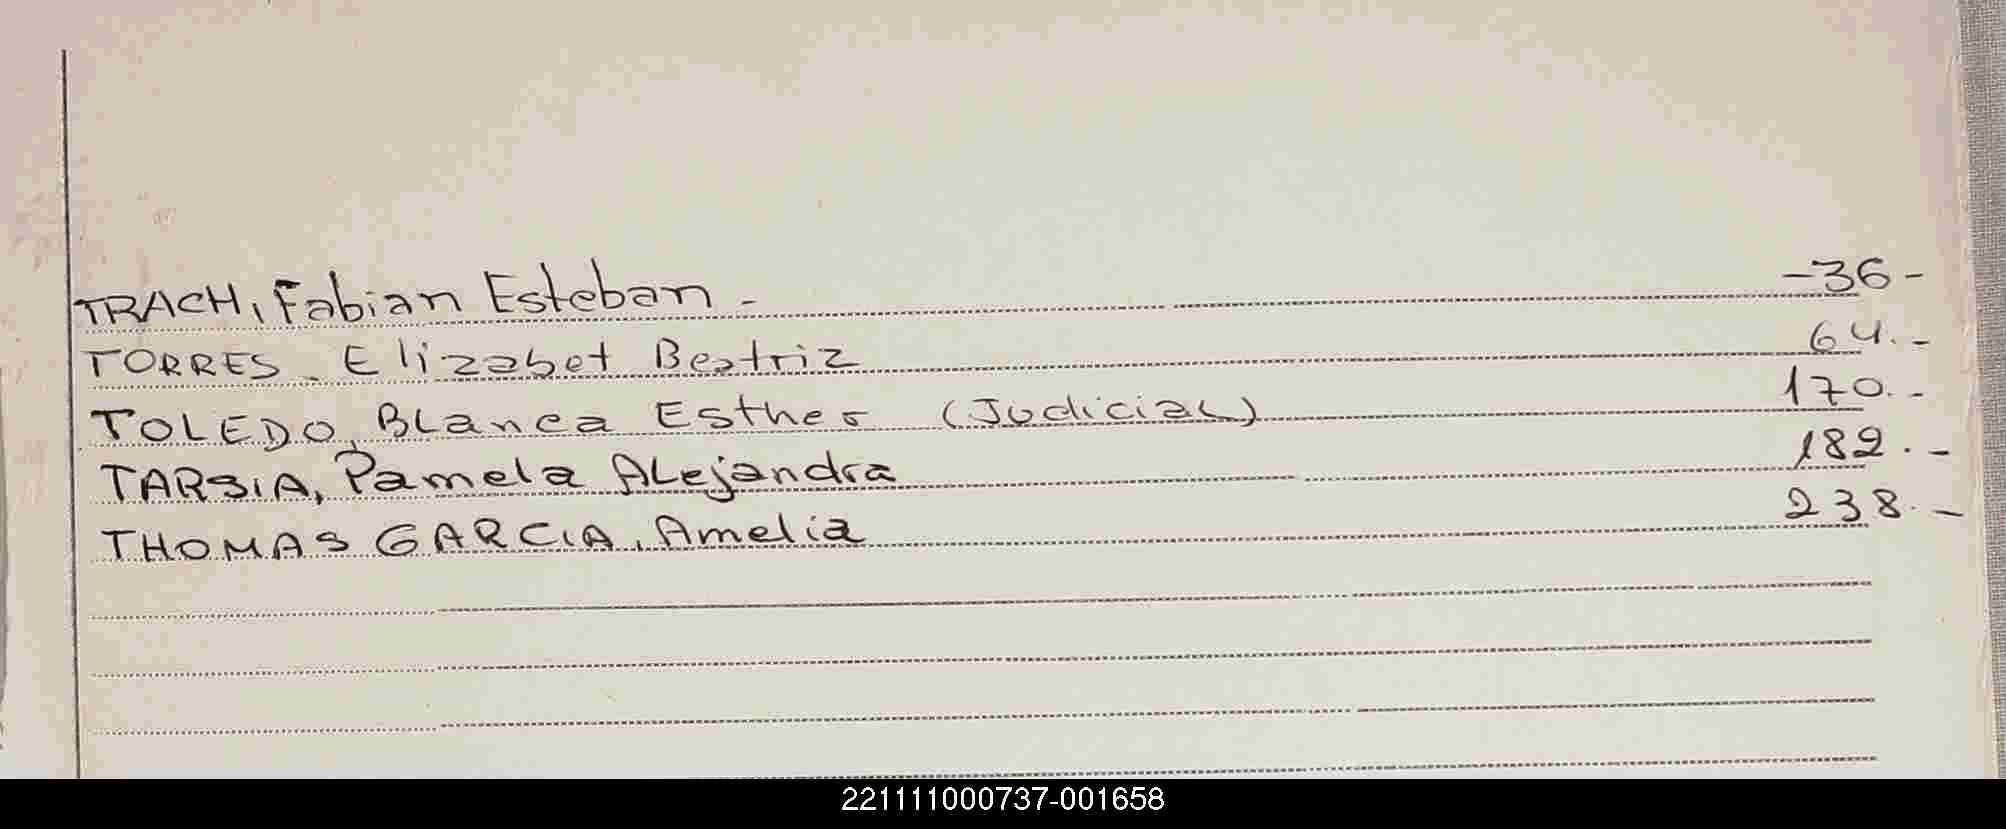 TRACH, Fabian Esteban - -36-
TORRES. Elizabet Beatriz 64.-
TOLEDO, Blanca Esther (Judicial) 170.-
TARSIA, Pamela Alejandra 182.-
THOMAS GARCIA, Amelia 238.-
221111000737-001658